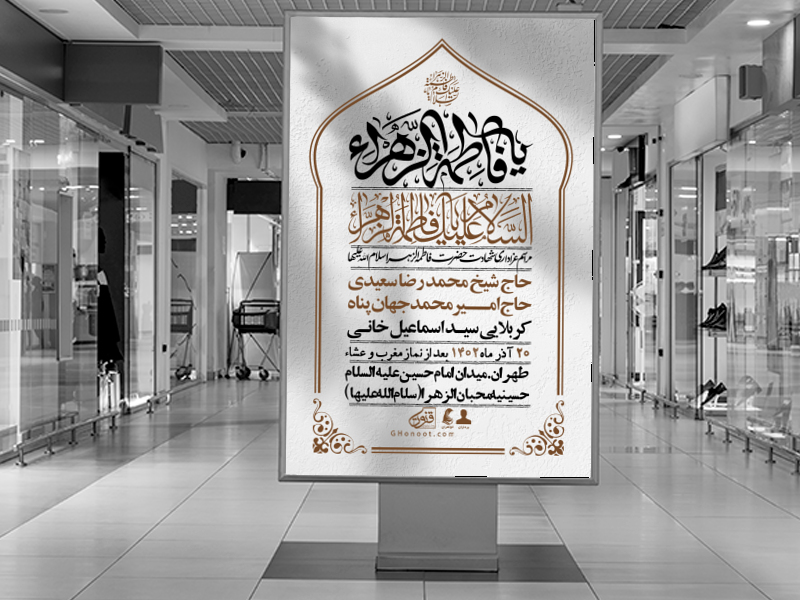 یا فاطمة الزهراء
السلام علیک یا فاطمة الزهراء
مراسم عزاداری شهادت حضرت فاطمه الزهرا سلام الله علیها
حاج شیخ محمدرضا سعیدی
حاج امیر محمد جهان پناه
کربلایی سید اسماعیل خانی
۲۰ آذر ماه ۱۴۰۲ بعد از نماز مغرب و عشاء
طهران.میدان امام حسین علیه السلام
حسینیه محبان الزهرا(سلام الله علیها)
برادران خواهران
GHonoot.com